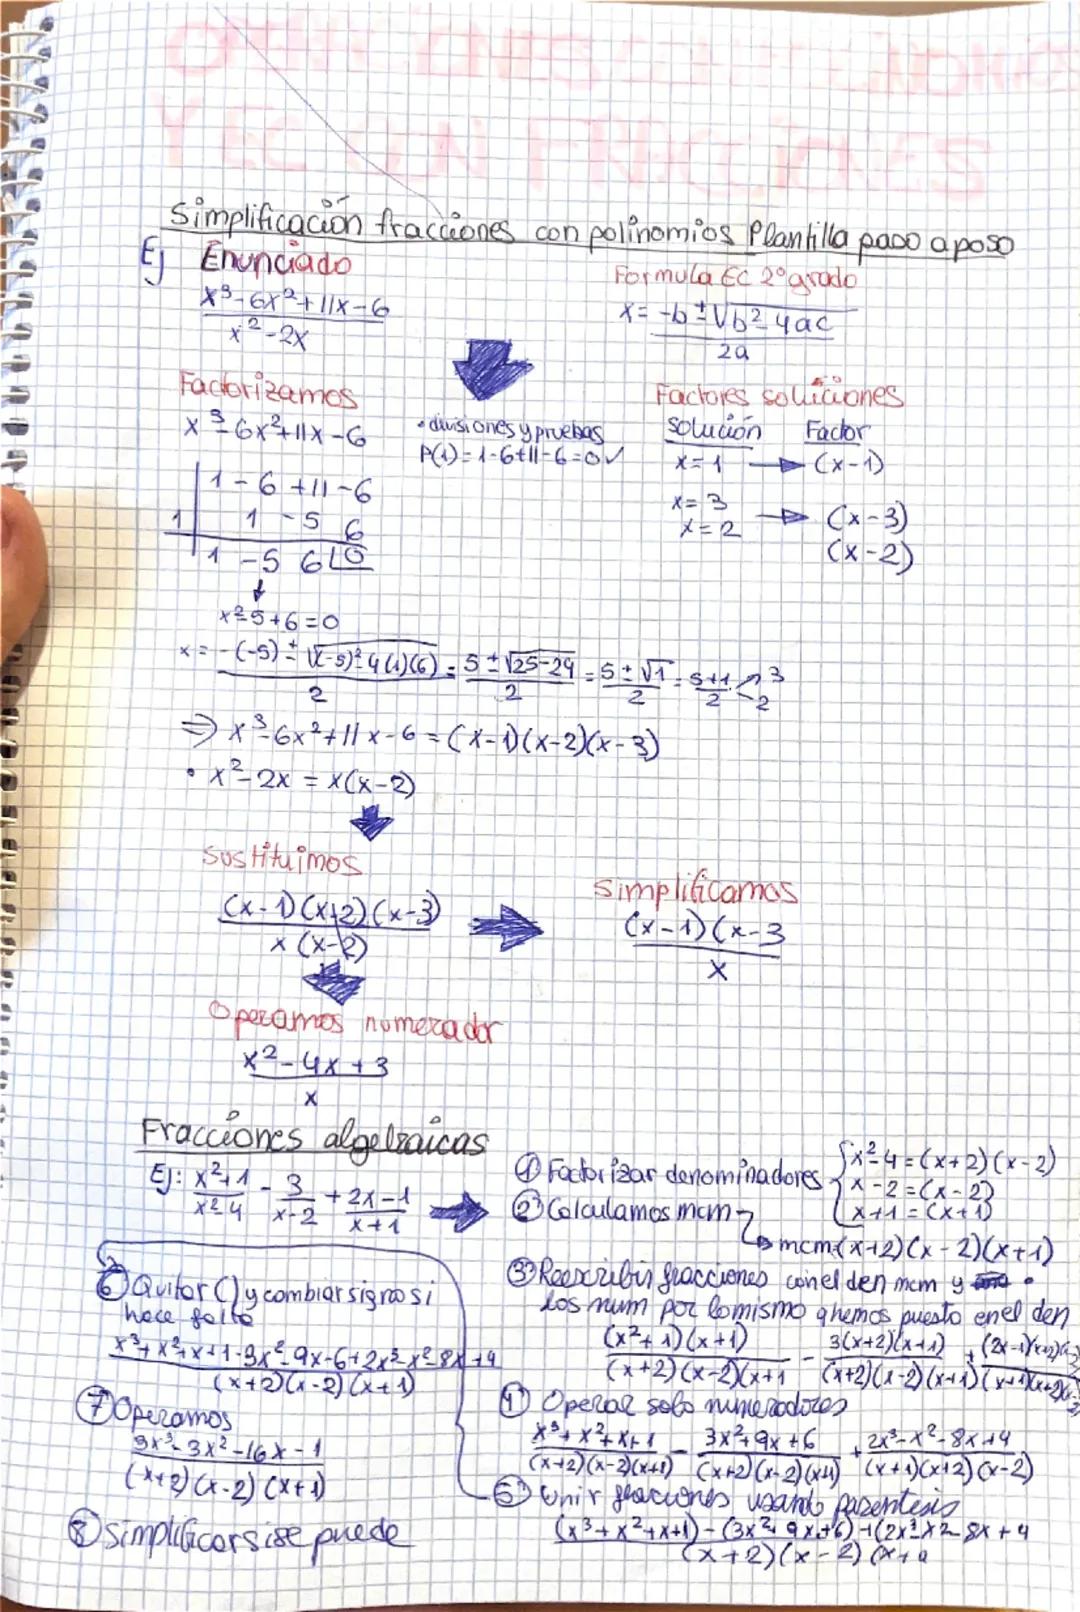 Simplificación fracciones con polinomios Plantilla paso a paso
Ej Enunciado
x³-6x²+11x-6
x²-2x
Formula Ec 2º grado
x= -b±√b²-4ac
2a
Factorizamos
x³-6x²+11x-6
• divisiones y pruebas
P(1)=1-6+11-6=0✓
1 -6 +11 -6
1 1 -5 6
1 -5 6 0
↓
x²-5+6=0
Factores soluciones
Solución Factor
x=1 → (x-1)
x=3 → (x-3)
x=2 (x-2)
x= -(-5)±√(-5)²-4(1)(6) = 5±√25-24 = 5±√1 = 5±1 < 3
2 2 2 2 2
⇒ x³-6x²+11x-6=(x-1)(x-2)(x-3)
• x²-2x = x(x-2)
Sustituimos
(x-1)(x+2)(x-3)
x(x-2)
Simplificamos
(x-1)(x-3
x
Operamos numerador
x²-4x+3
x
Fracciones algebraicas
Ej: x²+1 - 3 + 2x-1
x²-4 x-2 x+1
① Factorizar denominadores { x²-4=(x+2)(x-2)
x-2=(x-2)
x+1=(x+1)
② Calculamos mcm
→ mcm:(x+2)(x-2)(x+1)
③ Reescribir fracciones con el den mcm y •
los num por lo mismo q hemos puesto en el den
(x²+1)(x+1) - 3(x+2)(x+1) + (2x-1)(x+2)(x-2)
(x+2)(x-2)(x+1 (x+2)(x-2)(x+1) (x+1)(x+2)(x-2)
④ Operar solo numeradores
x³+x²+x+1 - 3x²+9x+6 + 2x³-x²-8x+4
(x+2)(x-2)(x+1) (x+2)(x-2)(x+1) (x+1)(x+2)(x-2)
⑤ Unir fracciones usando parentesis
(x³+x²+x+1)-(3x²+9x+6)+(2x³-x²-8x+4
(x+2)(x-2)(x+1
⑥ Quitar () y cambiar signo si
hace falta
x³+x²+x+1-3x²-9x-6+2x³-x²-8x+4
(x+2)(x-2)(x+1)
⑦ Operamos
3x³-3x²-16x-1
(x+2)(x-2)(x+1)
⑧ Simplificar si se puede